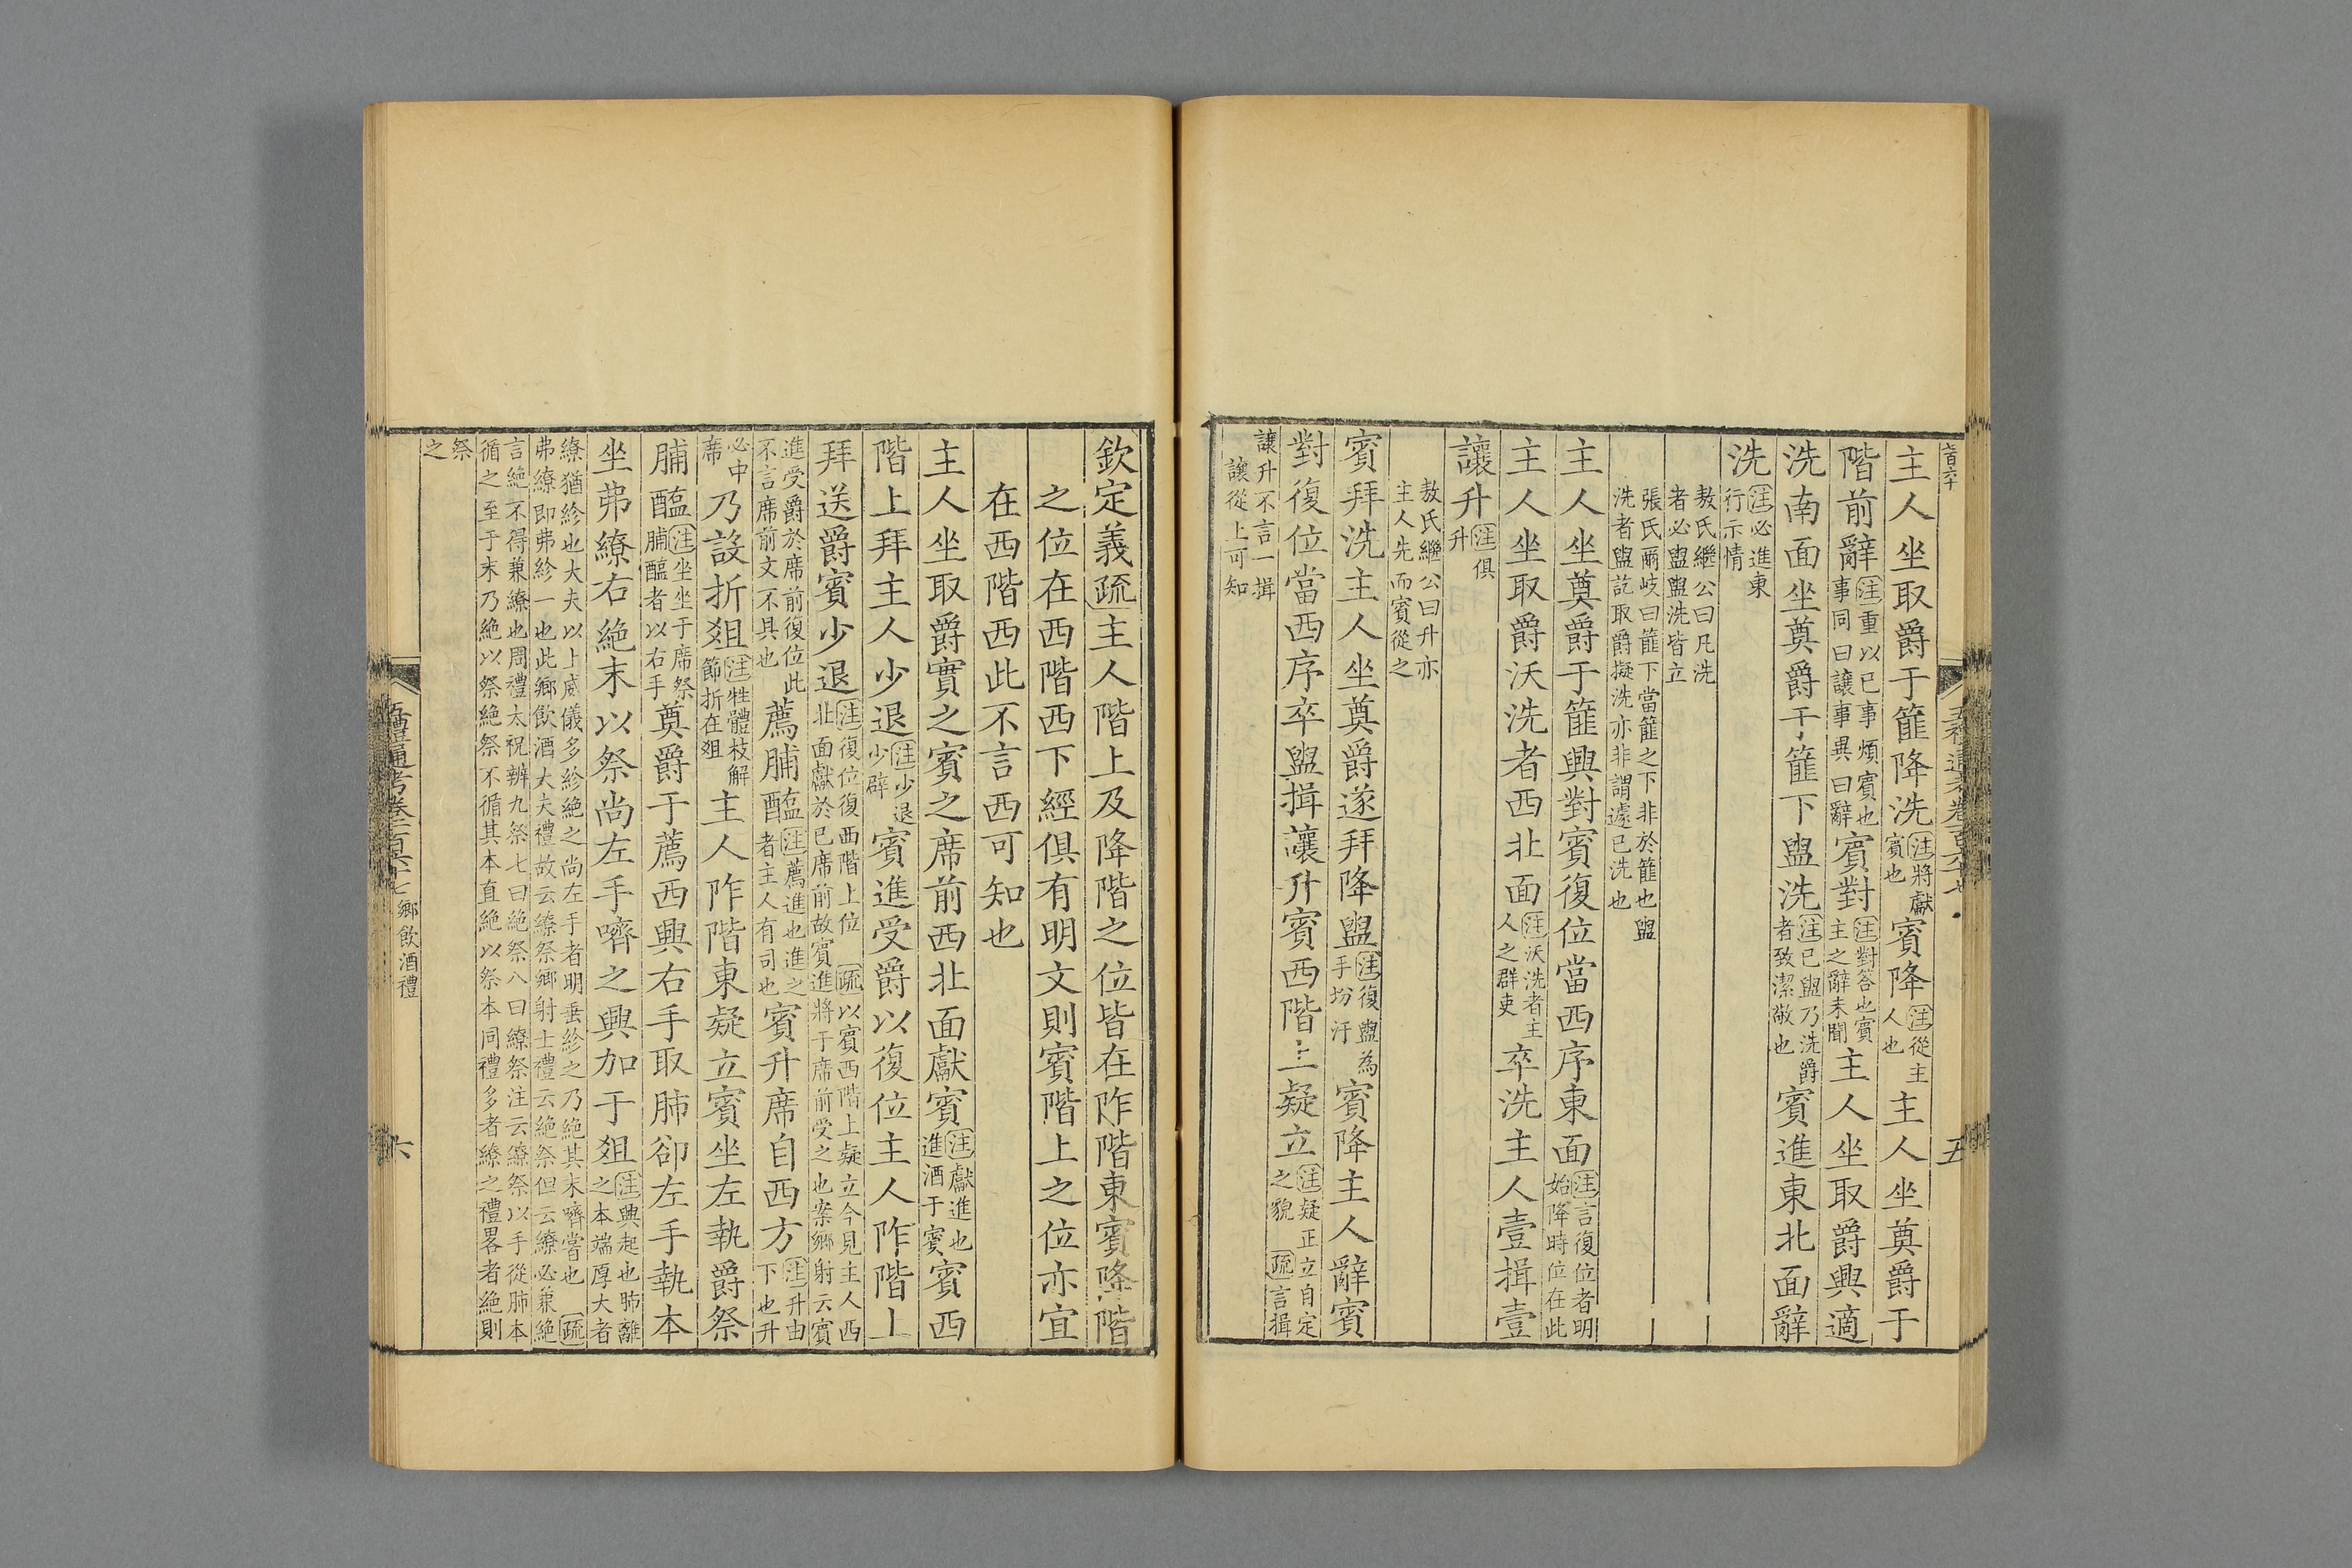 主人坐取爵于篚降洗注將獻賓也賓降注從主人也主人坐奠爵于
階前辭注重以已事煩賓也事同曰讓事異曰辭賓對注對答也賓主之辭未聞主人坐取爵興適
洗南面坐奠爵于篚下盥洗注已盥乃洗爵者致潔敬也賓進東北面辭
洗注必進東行示情
敖氏繼公曰凡洗者必盥盥洗皆立
張氏爾岐曰篚下當篚之下非於篚也盥洗者盥訖取爵擬洗亦非謂遽已洗也
主人坐奠爵于篚興對賓復位當西序東面注言復位者明始降時位在此
主人坐取爵沃洗者西北面注沃洗者主人之群吏卒洗主人壹揖壹
讓升注俱升
敖氏繼公曰升亦主人先而賓從之
賓拜洗主人坐奠爵遂拜降盥注復盥為手坋汙賓降主人辭賓
對復位當西序卒盥揖讓升賓西階上疑立注疑正立自定之貌 疏言揖
讓升不言一揖讓從上可知
五禮通考卷一百六十七
五
欽定義疏主人階上及降階之位皆在阼階東賓降階
之位在西階西下經俱有明文則賓階上之位亦宜
在西階西此不言西可知也
主人坐取爵實之賓之席前西北面獻賓注獻進也進酒于賓賓西
階上拜主人少退注少退少辟賓進受爵以復位主人阼階上
拜送爵賓少退注復位復西階上位 疏以賓西階上疑立今見主人西北面獻於已席前故賓進將于席前受之也案鄉射云賓
進受爵於席前復位此不言席前文不具也薦脯醢注薦進也進之者主人有司也賓升席自西方注升由下也升
必中席乃設折俎注牲體枝解節折在俎主人阼階東疑立賓坐左執爵祭
脯醢注坐坐于席祭脯醢者以右手奠爵于薦西興右手取肺卻左手執本
坐弗繚右絶末以祭尚左手嚌之興加于俎注興起也肺離之本端厚大者
繚猶紾也大夫以上威儀多紾絶之尚左手者明垂紾之乃絶其末嚌嘗也 疏
弗繚即弗紾一也此鄉飲酒大夫禮故云繚祭鄉射士禮云絶祭但云繚必兼絶
言絶不得兼繚也周禮太祝辨九祭七曰絶祭八曰繚祭注云繚祭以手從肺本
循之至于末乃絶以祭絶祭不循其本直絶以祭本同禮多者繚之禮畧者絶則
祭之
五禮通考卷一百六十七 鄉飲酒禮
六